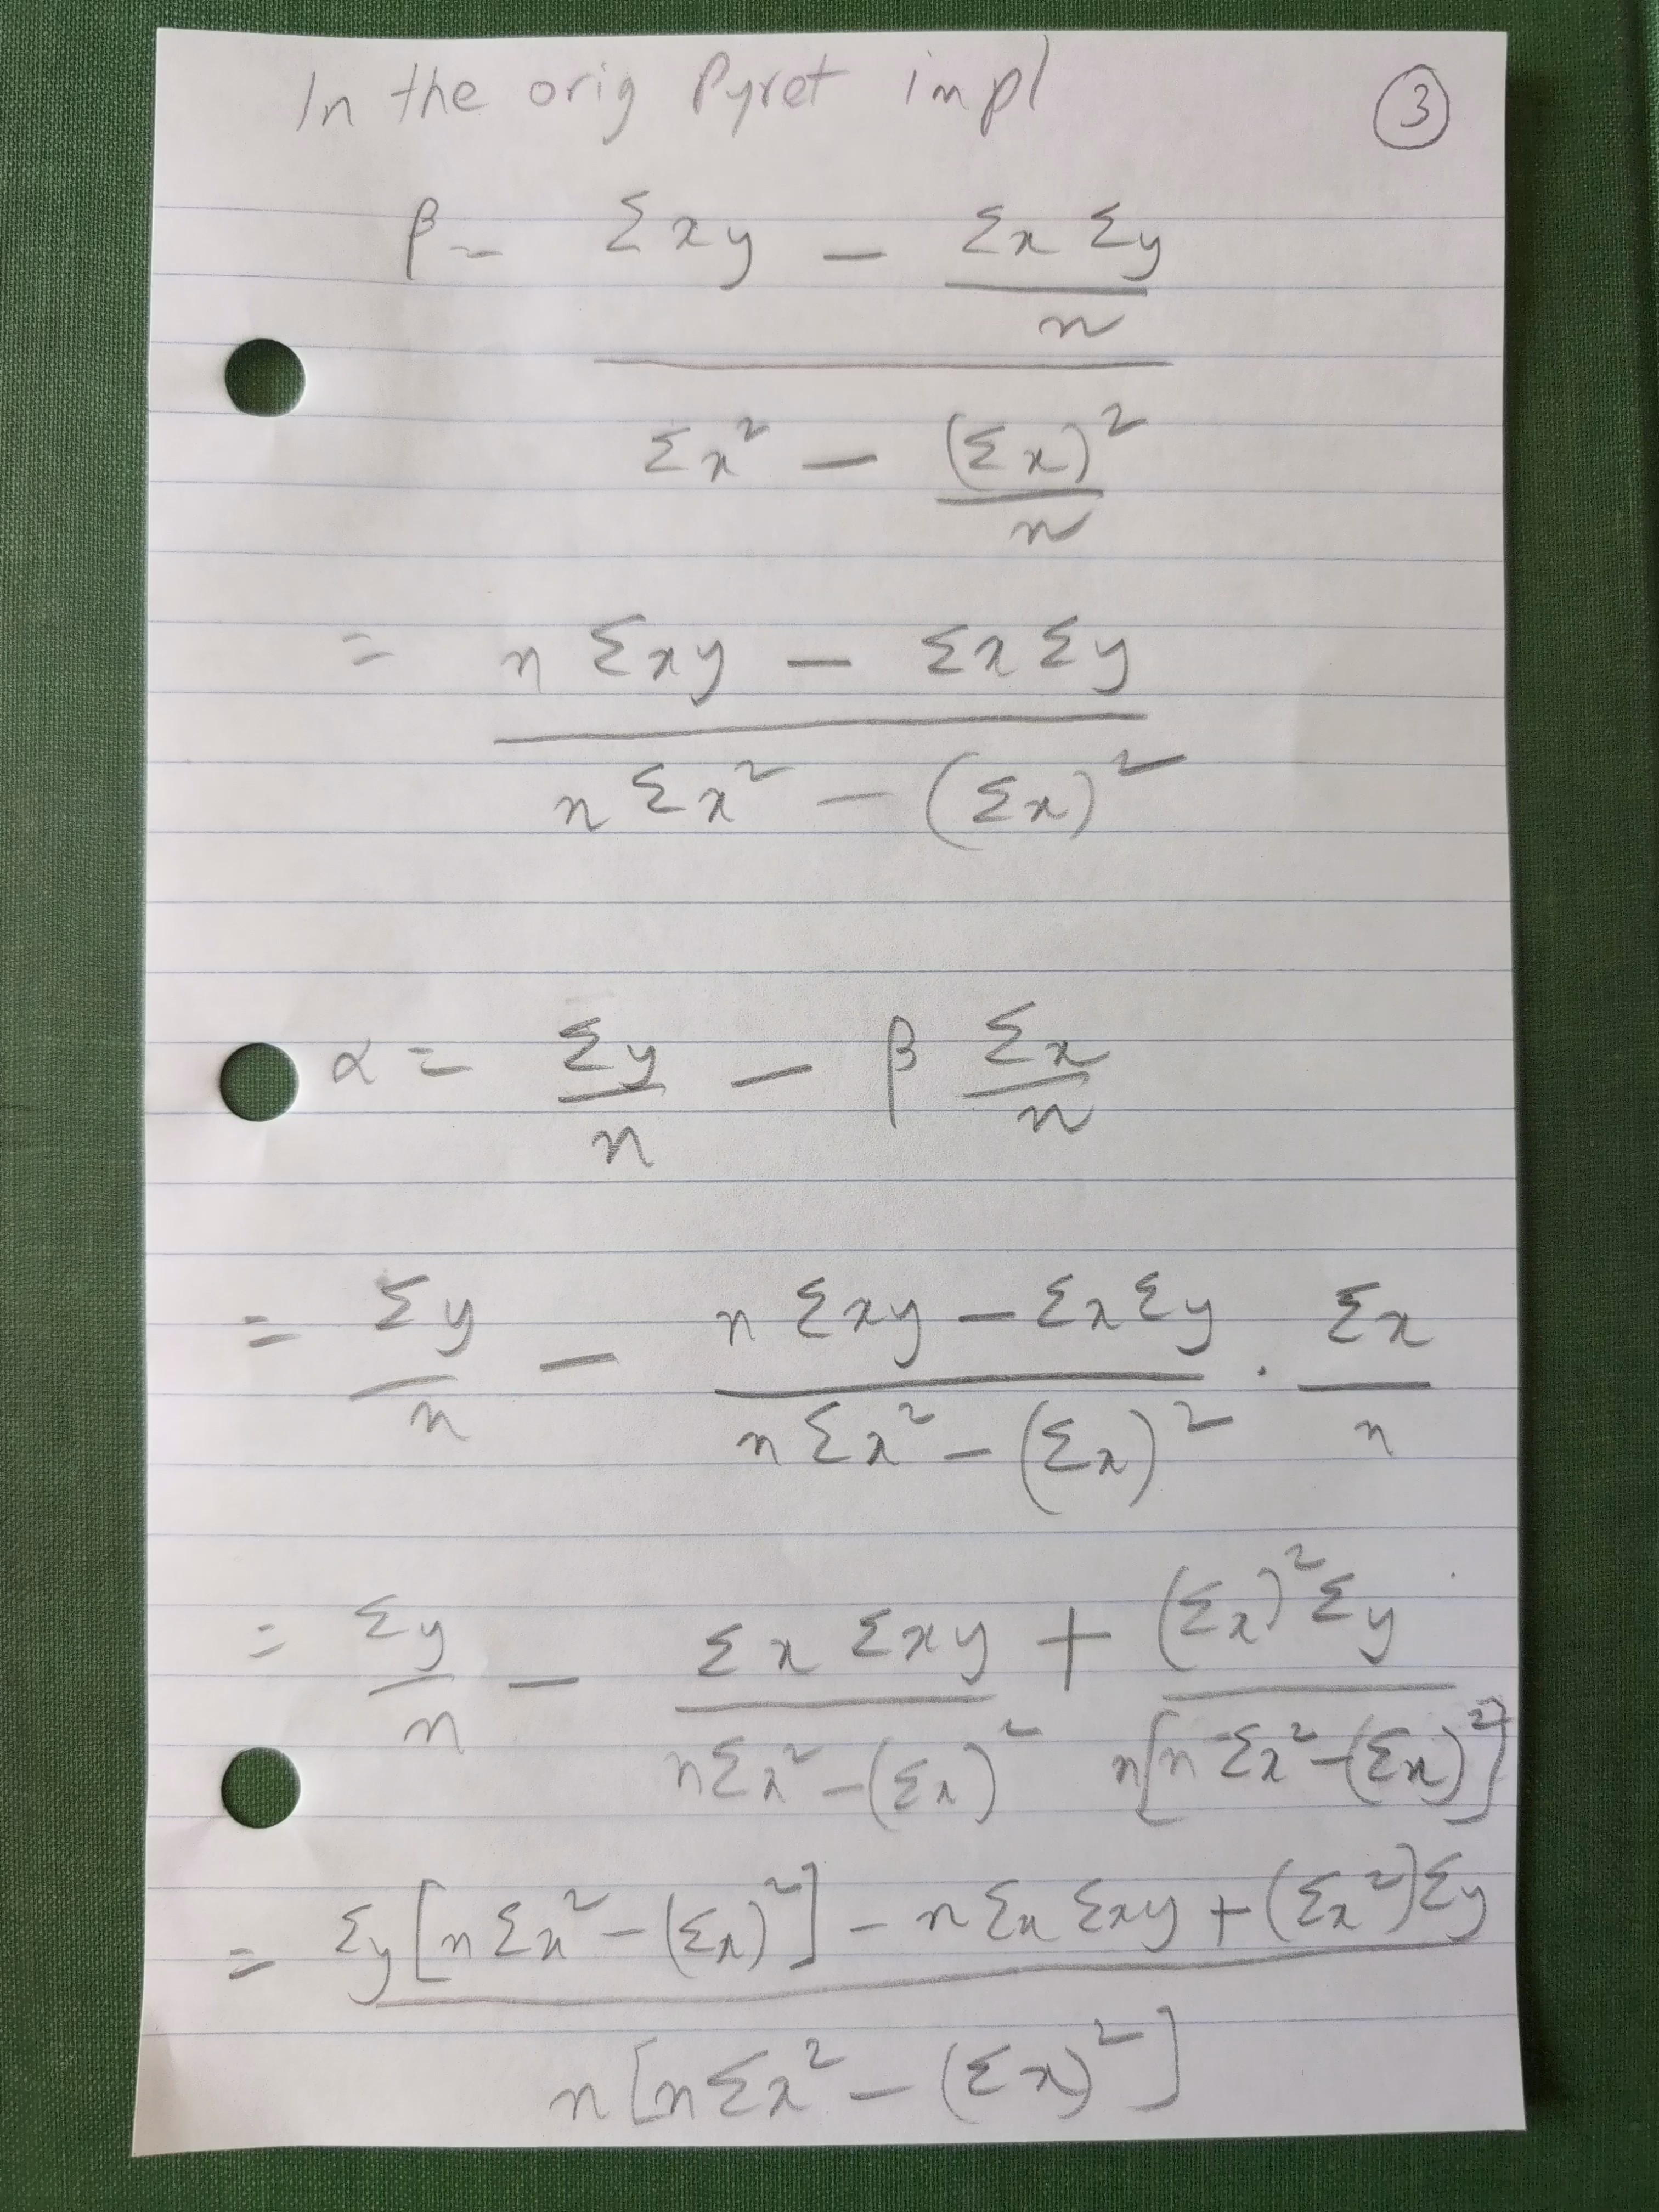 In the orig Pyret impl ③
β = (Σxy − (Σx Σy)/n) / (Σx² − (Σx)²/n)
= (n Σxy − Σx Σy) / (n Σx² − (Σx)²)
α = Σy/n − β Σx/n
= Σy/n − (n Σxy − Σx Σy)/(n Σx² − (Σx)²) · Σx/n
= Σy/n − (Σx Σxy)/(nΣx² − (Σx)²) + ((Σx)² Σy)/(n[n Σx² − (Σx)²])
= (Σy[n Σx² − (Σx)²] − n Σx Σxy + (Σx²)Σy) / (n[nΣx² − (Σx)²])